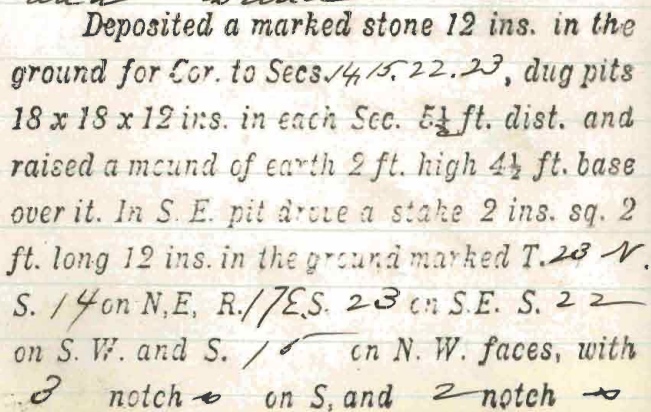 Deposited a marked stone 12 ins. in the
ground for Cor. to Secs. 14, 15. 22. 23, dug pits
18 x 18 x 12 ins. in each Sec. 5½ ft. dist. and
raised a mound of earth 2 ft. high 4½ ft. base
over it. In S. E. pit drove a stake 2 ins. sq. 2
ft. long 12 ins. in the ground marked T. 23 N.
S. 14 on N, E, R. 17 E, S. 23 on S.E. S. 22
on S. W. and S. 15 on N. W. faces, with
3 notch on S, and 2 notch